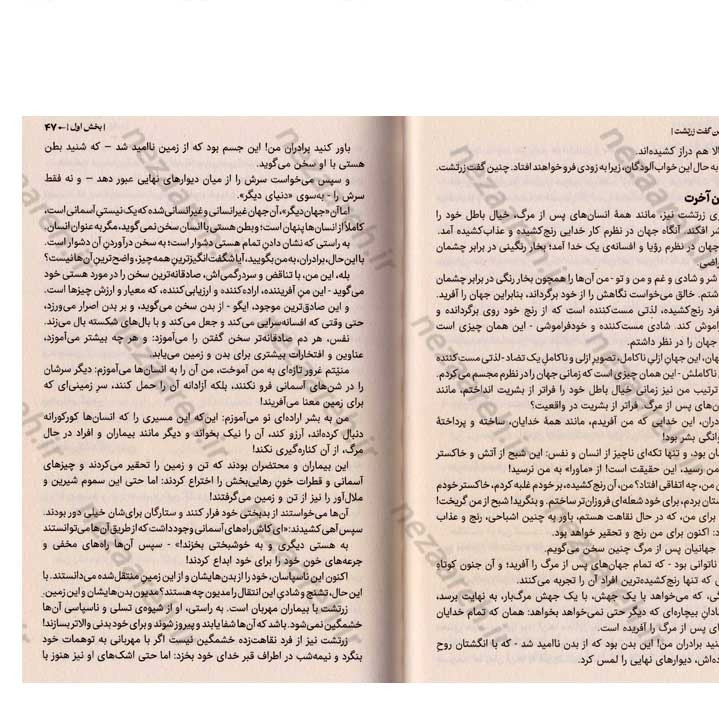 ن گفت زرتشت |
الا هم دراز کشیده‌اند.
به حال این خواب‌آلودگان، زیرا به زودی فرو خواهند افتاد. چنین گفت زرتشت.
ن آخرت
ی زرتشت نیز، مانند همهٔ انسان‌های پس از مرگ، خیال باطل خود را
شر افکند. آنگاه جهان در نظرم کار خدایی رنج‌کشیده و عذاب‌کشیده آمد.
جهان در نظرم رؤیا و افسانه‌ی یک خدا آمد؛ بخار رنگینی در برابر چشمان
راضی
شر و شادی و غم و من و تو - من آن‌ها را همچون بخار رنگی در برابر چشمان
شتم. خالق می‌خواست نگاهش را از خود برگرداند، بنابراین جهان را آفرید.
فرد رنج‌کشیده، لذتی مست‌کننده است که از رنج خود روی برگردانده و
اموش کند. شادی مست‌کننده و خودفراموشی - این همان چیزی است
جهان را در نظر داشتم.
هان، این جهانِ ازلیِ ناکامل، تصویر ازلی و ناکاملِ یک تضاد - لذتی مست‌کننده
ناکاملش - این همان چیزی است که زمانی جهان را در نظرم مجسم می‌کردم.
ترتیب من نیز زمانی خیال باطل خود را فراتر از بشریت انداختم، مانند
ن‌های پس از مرگ. فراتر از بشریت در واقعیت؟
دران، این خدایی که من آفریدم، مانند همهٔ خدایان، ساخته و پرداختهٔ
وانگی بشر بود!
ان بود، و تنها تکه‌ای ناچیز از انسان و نفس: این شبح از آتش و خاکستر
من رسید، این حقیقت است! از «ماورا» به من نرسید!
ن من، چه اتفاقی افتاد؟ من، آن رنج کشیده، بر خودم غلبه کردم، خاکستر خودم
ستان بردم، برای خود شعله‌ای فروزان‌تر ساختم. و بنگرید! شبح از من گریخت!
برای من، که در حال نقاهت هستم، باور به چنین اشباحی، رنج و عذاب
د: اکنون برای من رنج و تحقیر خواهد بود.
جهانیان پس از مرگ چنین سخن می‌گویم.
ناتوانی بود - که تمام جهان‌های پس از مرگ را آفرید؛ و آن جنون کوتاهِ
که تنها رنج‌کشیده‌ترین افراد آن را تجربه می‌کنند.
گی، که می‌خواهد با یک جهش، با یک جهش مرگ‌بار، به نهایت برسد،
ادانِ بیچاره‌ای که دیگر حتی نمی‌خواهد بخواهد: همان که تمام خدایان
ی پس از مرگ را آفریده است.
نید برادران من! این بدن بود که از بدن ناامید شد - که با انگشتان روح
ده‌اش، دیوارهای نهایی را لمس کرد.
| بخش اول | ← ۴۷
باور کنید برادران من! این جسم بود که از زمین ناامید شد – که شنید بطن
هستی با او سخن می‌گوید.
و سپس می‌خواست سرش را از میان دیوارهای نهایی عبور دهد – و نه فقط
سرش را - به‌سوی «دنیای دیگر».
اما آن «جهان دیگر»، آن جهان غیرانسانی و غیرانسانی‌شده که یک نیستیِ آسمانی است،
کاملاً از انسان‌ها پنهان است؛ و بطن هستی با انسان سخن نمی‌گوید، مگر به‌عنوان انسان.
به راستی که نشان دادن تمام هستی دشوار است؛ به سخن درآوردن آن دشوار است.
با این حال، برادران، به من بگویید، آیا شگفت‌انگیزترینِ همه‌چیز، واضح‌ترینِ آن‌ها نیست؟
بله، این من، با تناقض و سردرگمی‌اش، صادقانه‌ترین سخن را در مورد هستی خود
می‌گوید - این منِ آفریننده، اراده‌کننده و ارزیابی‌کننده، که معیار و ارزش چیزها است.
و این صادق‌ترین موجود، ایگو - از بدن سخن می‌گوید، و بر بدن اصرار می‌ورزد،
حتی وقتی که افسانه‌سرایی می‌کند و جعل می‌کند و با بال‌های شکسته بال می‌زند.
نفس، هر دم صادقانه‌تر سخن گفتن را می‌آموزد: و هر چه بیشتر می‌آموزد،
عناوین و افتخارات بیشتری برای بدن و زمین می‌یابد.
منیّتم غرور تازه‌ای به من آموخت، من آن را به انسان‌ها می‌آموزم: دیگر سرشان
را در شن‌های آسمانی فرو نکنند، بلکه آزادانه آن را حمل کنند، سرِ زمینی‌ای که
برای زمین معنا می‌آفریند!
من به بشر اراده‌ای نو می‌آموزم: این‌که این مسیری را که انسان‌ها کورکورانه
دنبال کرده‌اند، آرزو کند، آن را نیک بخواند و دیگر مانند بیماران و افراد در حال
مرگ، از آن کناره‌گیری نکند!
این بیماران و محتضران بودند که تن و زمین را تحقیر می‌کردند و چیزهای
آسمانی و قطرات خونِ رهایی‌بخش را اختراع کردند: اما حتی این سموم شیرین و
ملال‌آور را نیز از تن و زمین می‌گرفتند!
آن‌ها می‌خواستند از بدبختی خود فرار کنند و ستارگان برای‌شان خیلی دور بودند.
سپس آهی کشیدند: «ای کاش راه‌های آسمانی وجود داشت که از طریق آن‌ها می‌توانستند
به هستی دیگری و به خوشبختی بخزند!» - سپس آن‌ها راه‌های مخفی و
جرعه‌های خون خود را برای خود ابداع کردند!
اکنون این ناسپاسان، خود را از بدن‌هایشان و از این زمین منتقل‌شده می‌دانستند. با
این حال، تشنج و شادیِ این انتقال را مدیون چه هستند؟ مدیون بدن‌هایشان و این زمین.
زرتشت با بیماران مهربان است. به راستی، او از شیوه‌ی تسلی و ناسپاسی آن‌ها
خشمگین نمی‌شود. باشد که آن‌ها شفا یابند و پیروز شوند و برای خود بدنی والاتر بسازند!
زرتشت نیز از فرد نقاهت‌زده خشمگین نیست اگر با مهربانی به توهمات خود
بنگرد و نیمه‌شب در اطراف قبر خدای خود بخزد: اما حتی اشک‌های او نیز هنوز با